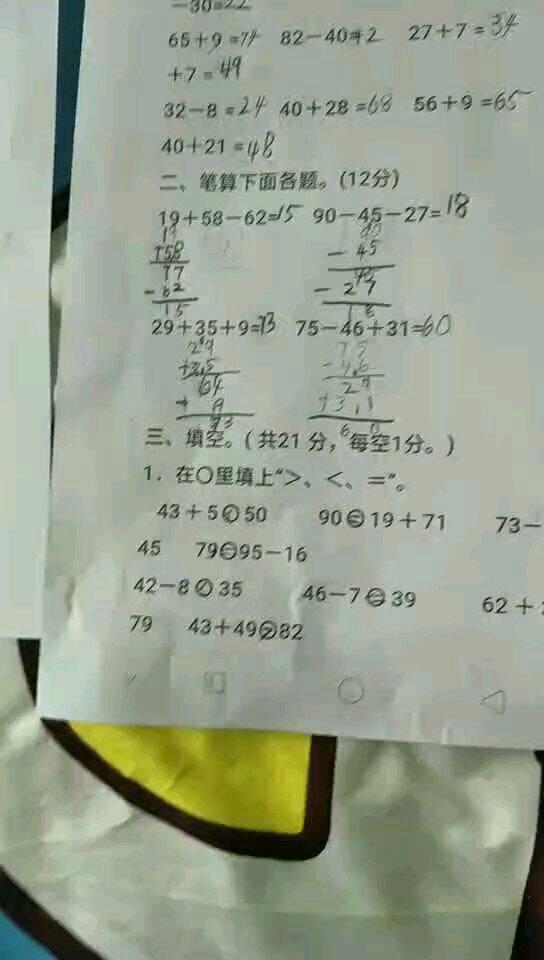 -30=22
65+9=74 82-40=42 27+7=34
+7=49
32-8=24 40+28=68 56+9=65
40+21=48
二、笔算下面各题。(12分)
19+58-62=15 90-45-27=18
19 90
+58 - 45
77 45
-62 - 27
15 18
29+35+9=73 75-46+31=60
29 75
+35 -46
64 29
+ 9 +31
73 60
三、填空。(共21分，每空1分。)
1. 在○里填上“>、<、=”。
43+5<50 90=19+71 73-
45 79=95-16
42-8<35 46-7=39 62+
79 43+49>82